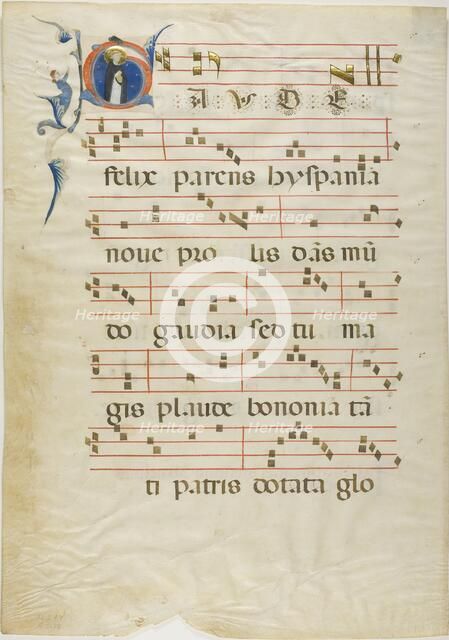 GAVDE
felix parens hyspania
noue pro lis dãs mũ
do gaudia sed tu ma
gis plaude bononia tã
ti patris dotata glo
Heritage
Heritage
Heritage
Heritage
Heritage
Heritage
Heritage
Heritage
©